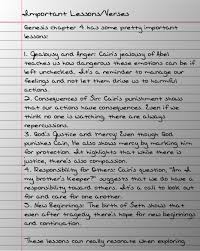 Important Lessons/Verses
Genesis chapter 4 has some pretty important
lessons:
1. Jealousy and Anger: Cain's jealousy of Abel
teaches us how dangerous these emotions can be if
left unchecked. It's a reminder to manage our
feelings and not let them drive us to harmful
actions.
2. Consequences of Sin: Cain's punishment shows
that our actions have consequences. Even if we
think no one is watching, there are always
repercussions.
3. God's Justice and Mercy: Even though God
punishes Cain, He also shows mercy by marking him
for protection. It highlights that while there is
justice, there's also compassion.
4. Responsibility for Others: Cain's question, "Am I
my brother's keeper?" suggests that we do have a
responsibility toward others. It's a call to look out
for and care for one another.
5. New Beginnings: The birth of Seth shows that
even after tragedy, there's hope for new beginnings
and continuation.
These lessons can really resonate when exploring